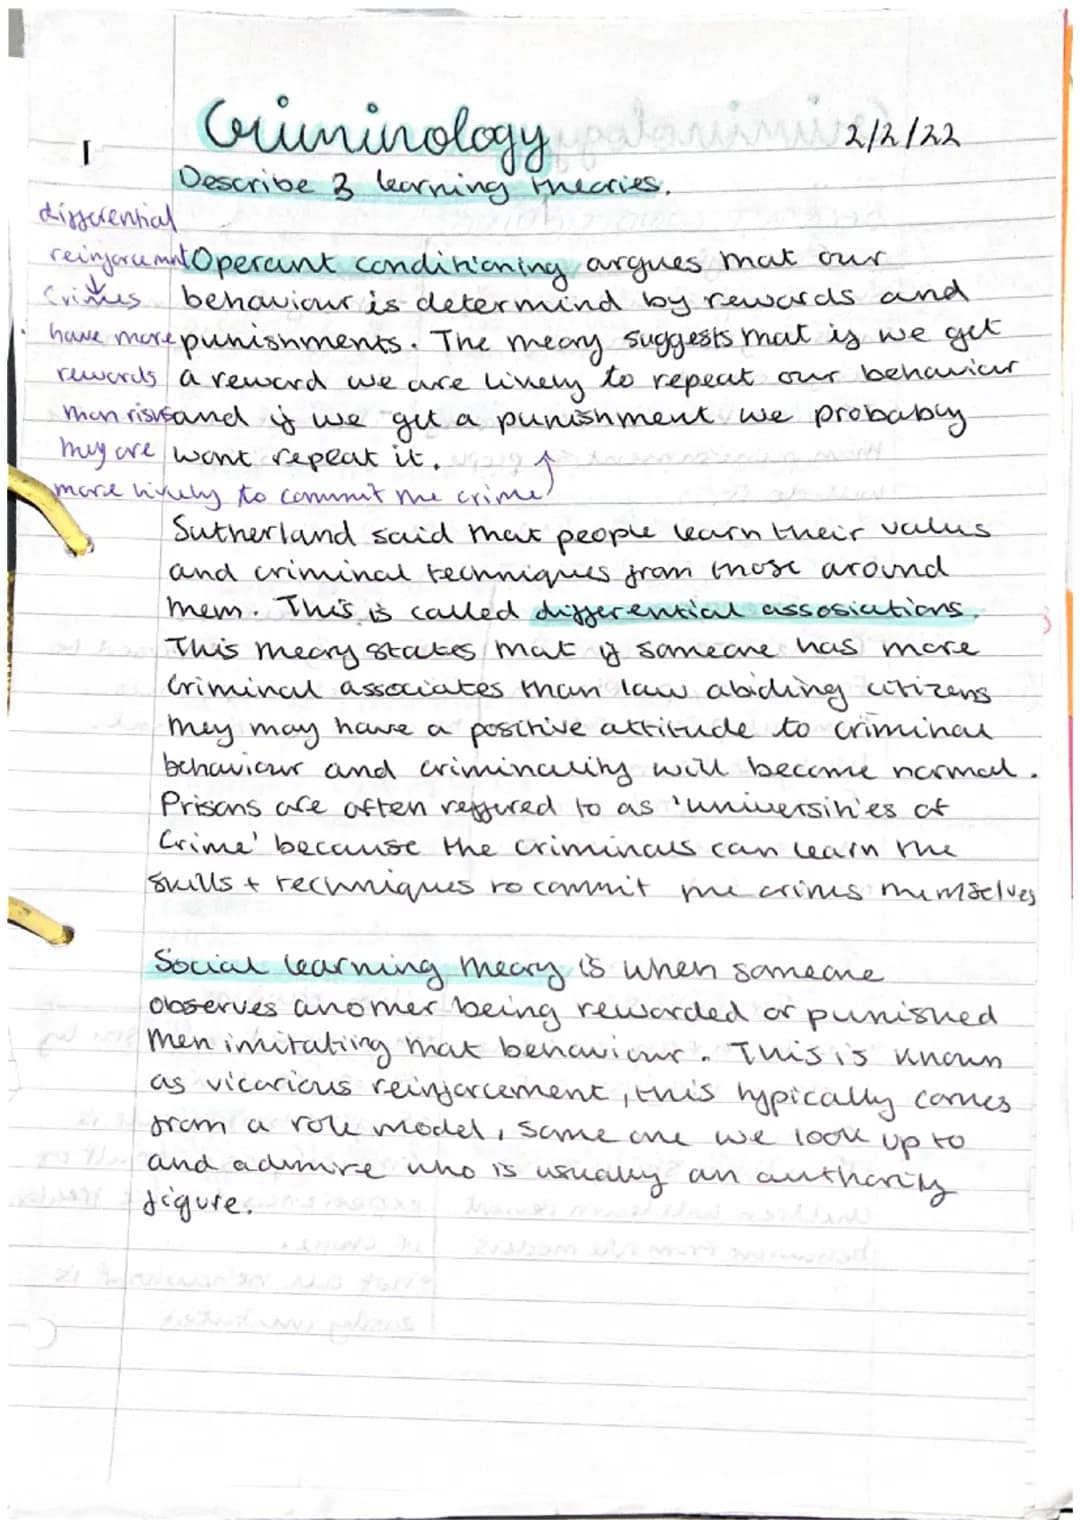 1
Criminology 2/2/22
Describe 3 learning theories.
differential
reinforcemnt
crimes
have more
rewards
than risks
they are
more likely to commit the crime
Operant conditioning argues that our
behaviour is determind by rewards and
punishments. The theory suggests that if we get
a reward we are likely to repeat our behaviour
and if we get a punishment we probably
wont repeat it.
Sutherland said that people learn their values
and criminal techniques from those around
them. This is called differential assosiations.
This theory states that if someone has more
criminal associates than law abiding citizens
they may have a positive attitude to criminal
behaviour and criminality will become normal.
Prisons are often reffured to as 'universities of
Crime' because the criminals can learn the
skills + techniques to commit the crimes themselves
Social learning theory is when someone
observes another being rewarded or punished
then imitating that behaviour. This is known
as vicarious reinforcement, this typically comes
from a role model, some one we look up to
and admire who is usually an authority
figure.